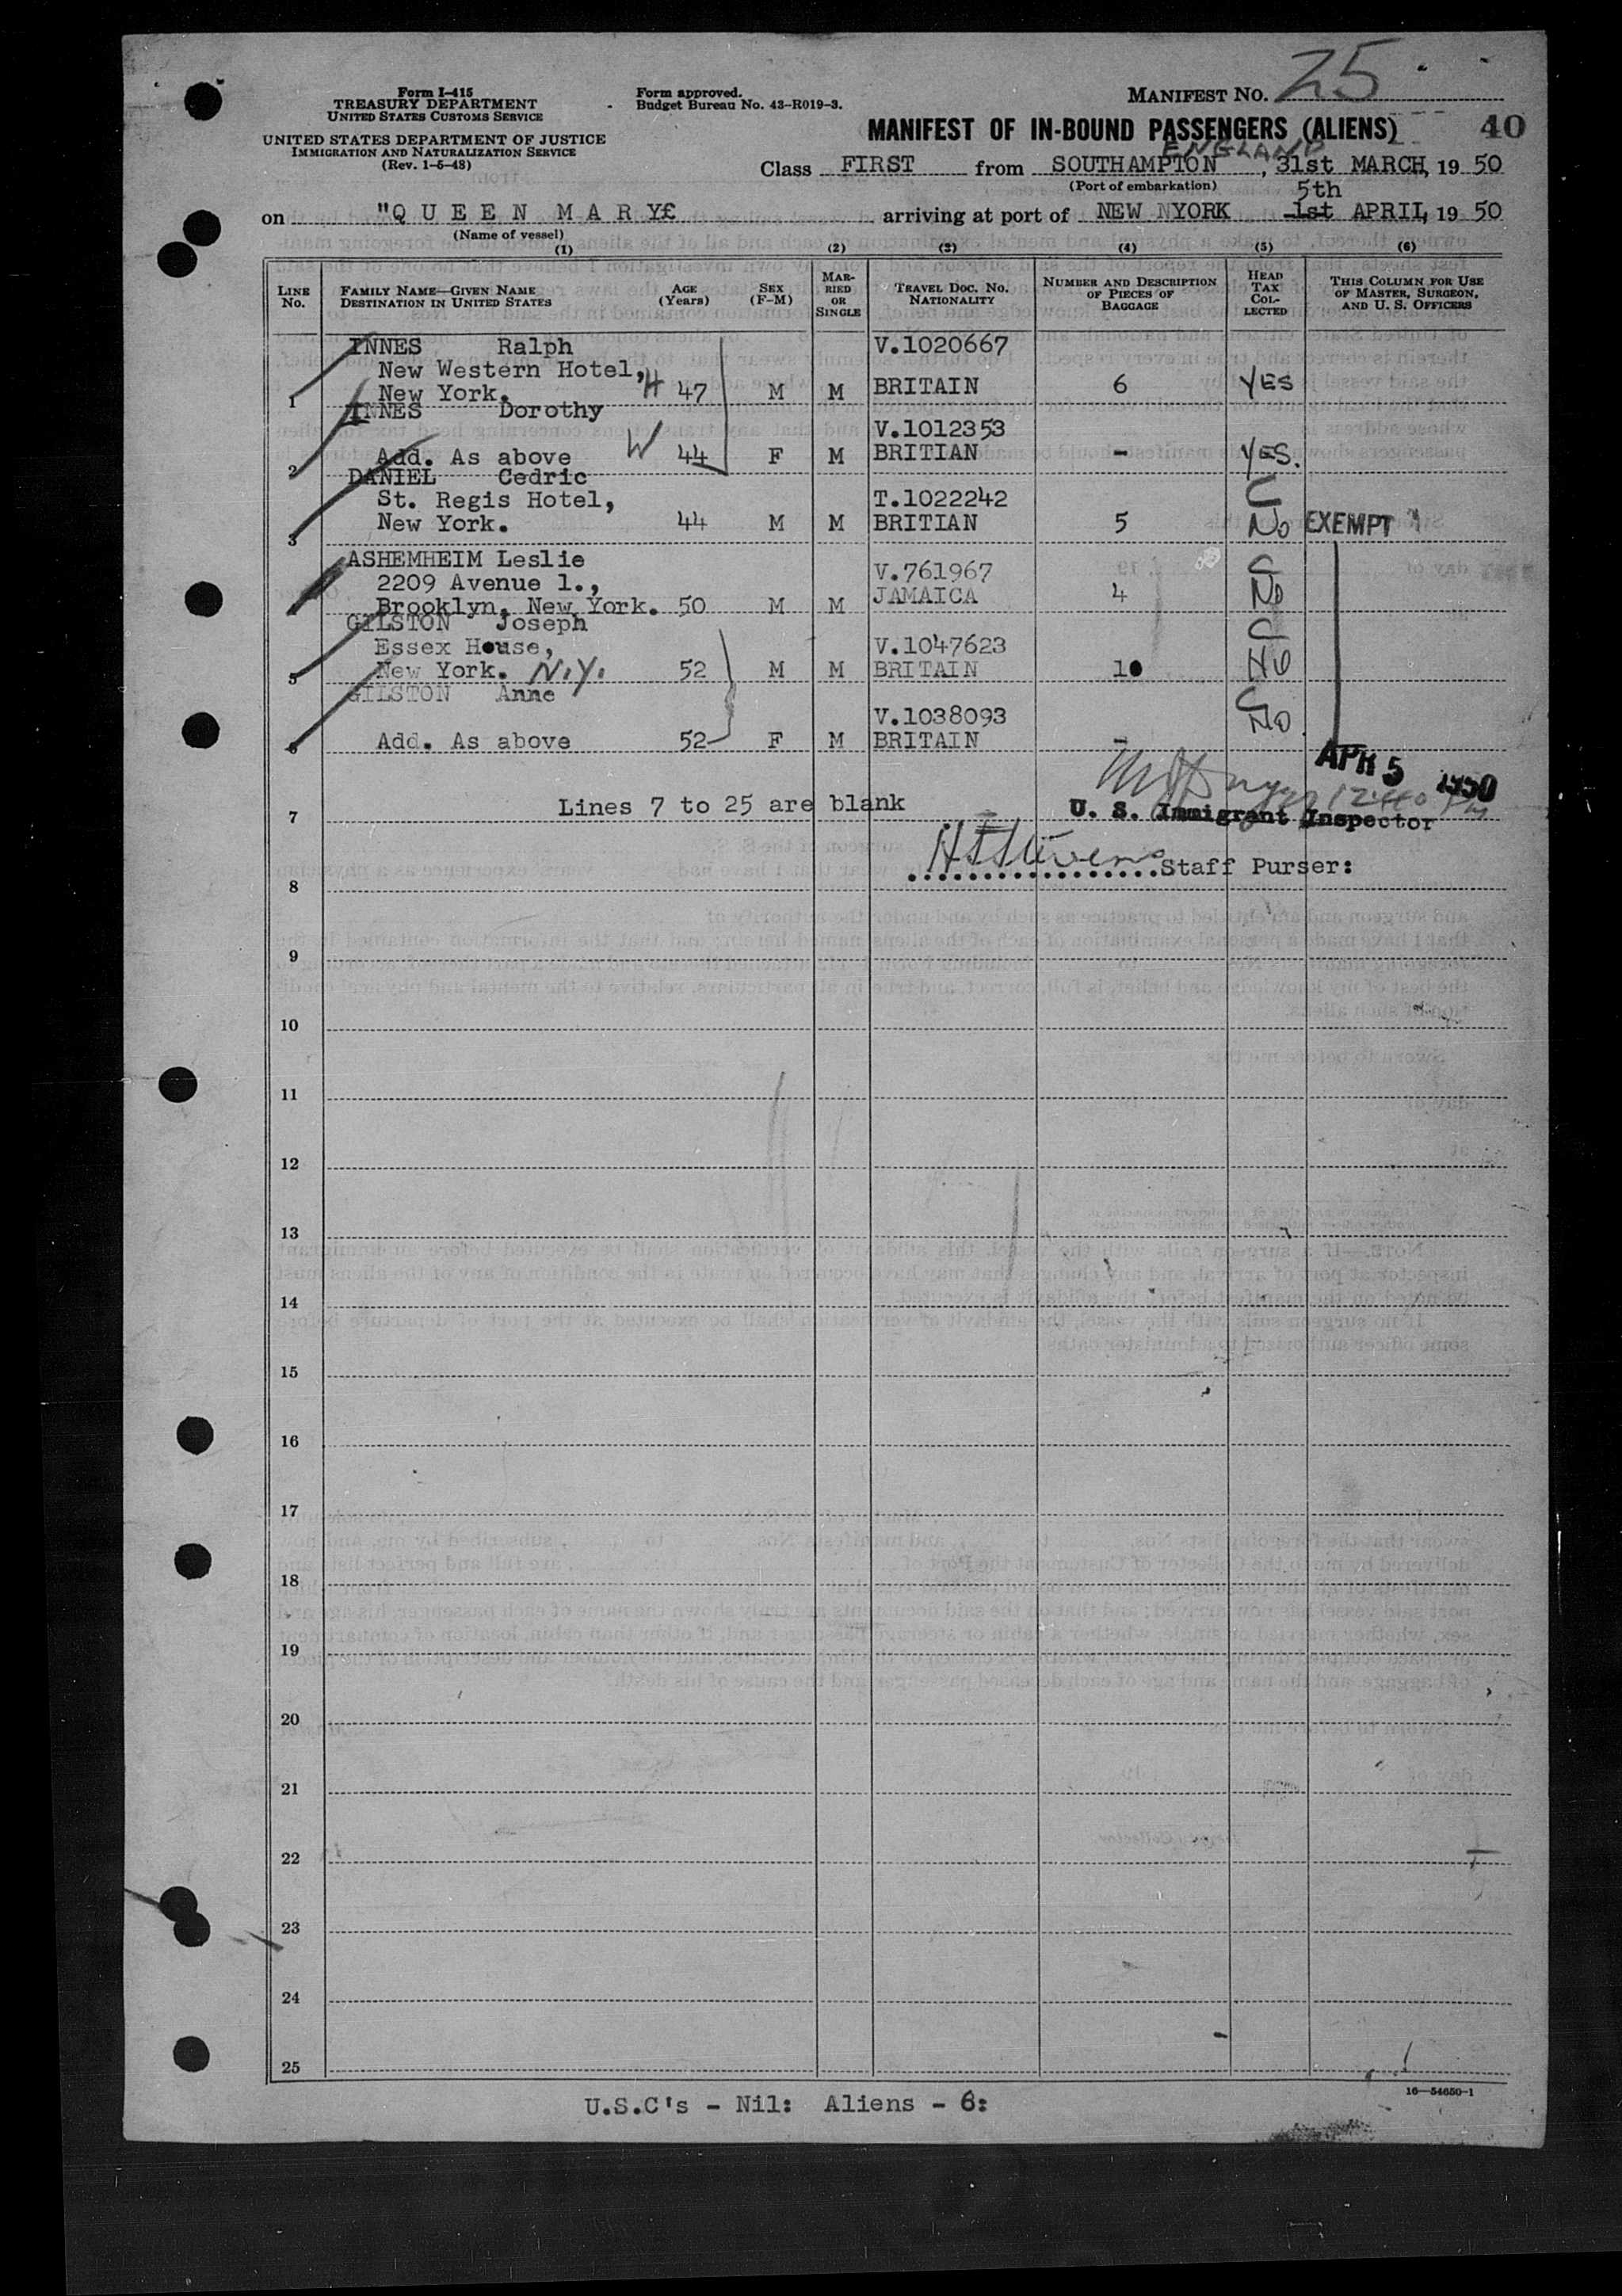 Form I-415
TREASURY DEPARTMENT
UNITED STATES CUSTOMS SERVICE
UNITED STATES DEPARTMENT OF JUSTICE
IMMIGRATION AND NATURALIZATION SERVICE
(Rev. 1-5-48)
Form approved.
Budget Bureau No. 43-R019-3.
MANIFEST NO. 25
MANIFEST OF IN-BOUND PASSENGERS (ALIENS) 40
ENGLAND
Class FIRST from SOUTHAMPTON, 31st MARCH, 19 50
(Port of embarkation) 5th
on "Q U E E N M A R Y£ arriving at port of NEW NYORK 1st APRIL, 19 50
(Name of vessel)
(1) (2) (3) (4) (5) (6)
LINE No. FAMILY NAME—GIVEN NAME DESTINATION IN UNITED STATES AGE (Years) SEX (F-M) MARRIED OR SINGLE TRAVEL DOC. NO. NATIONALITY NUMBER AND DESCRIPTION OF PIECES OF BAGGAGE HEAD TAX COLLECTED THIS COLUMN FOR USE OF MASTER, SURGEON, AND U. S. OFFICERS
INNES Ralph V.1020667
New Western Hotel,
1 New York. H 47 M M BRITAIN 6 YES
INNES Dorothy
V.1012353
2 Add. As above W 44 F M BRITIAN - YES.
DANIEL Cedric
St. Regis Hotel, T.1022242 C
3 New York. 44 M M BRITIAN 5 No EXEMPT
ASHEMHEIM Leslie
2209 Avenue l., V.761967 C
4 Brooklyn, New York. 50 M M JAMAICA 4 No
GILSTON Joseph
Essex House, V.1047623 C
5 New York. N.Y. 52 M M BRITAIN 10 No
GILSTON Anne
V.1038093 C
6 Add. As above 52 F M BRITAIN - No
APR 5 1950
7 Lines 7 to 25 are blank 1240 PM
U. S. Immigrant Inspector
8 H Stevens Staff Purser:
9
10
11
12
13
14
15
16
17
18
19
20
21
22
23
24
25
16—54650-1
U.S.C's - Nil: Aliens - 6: